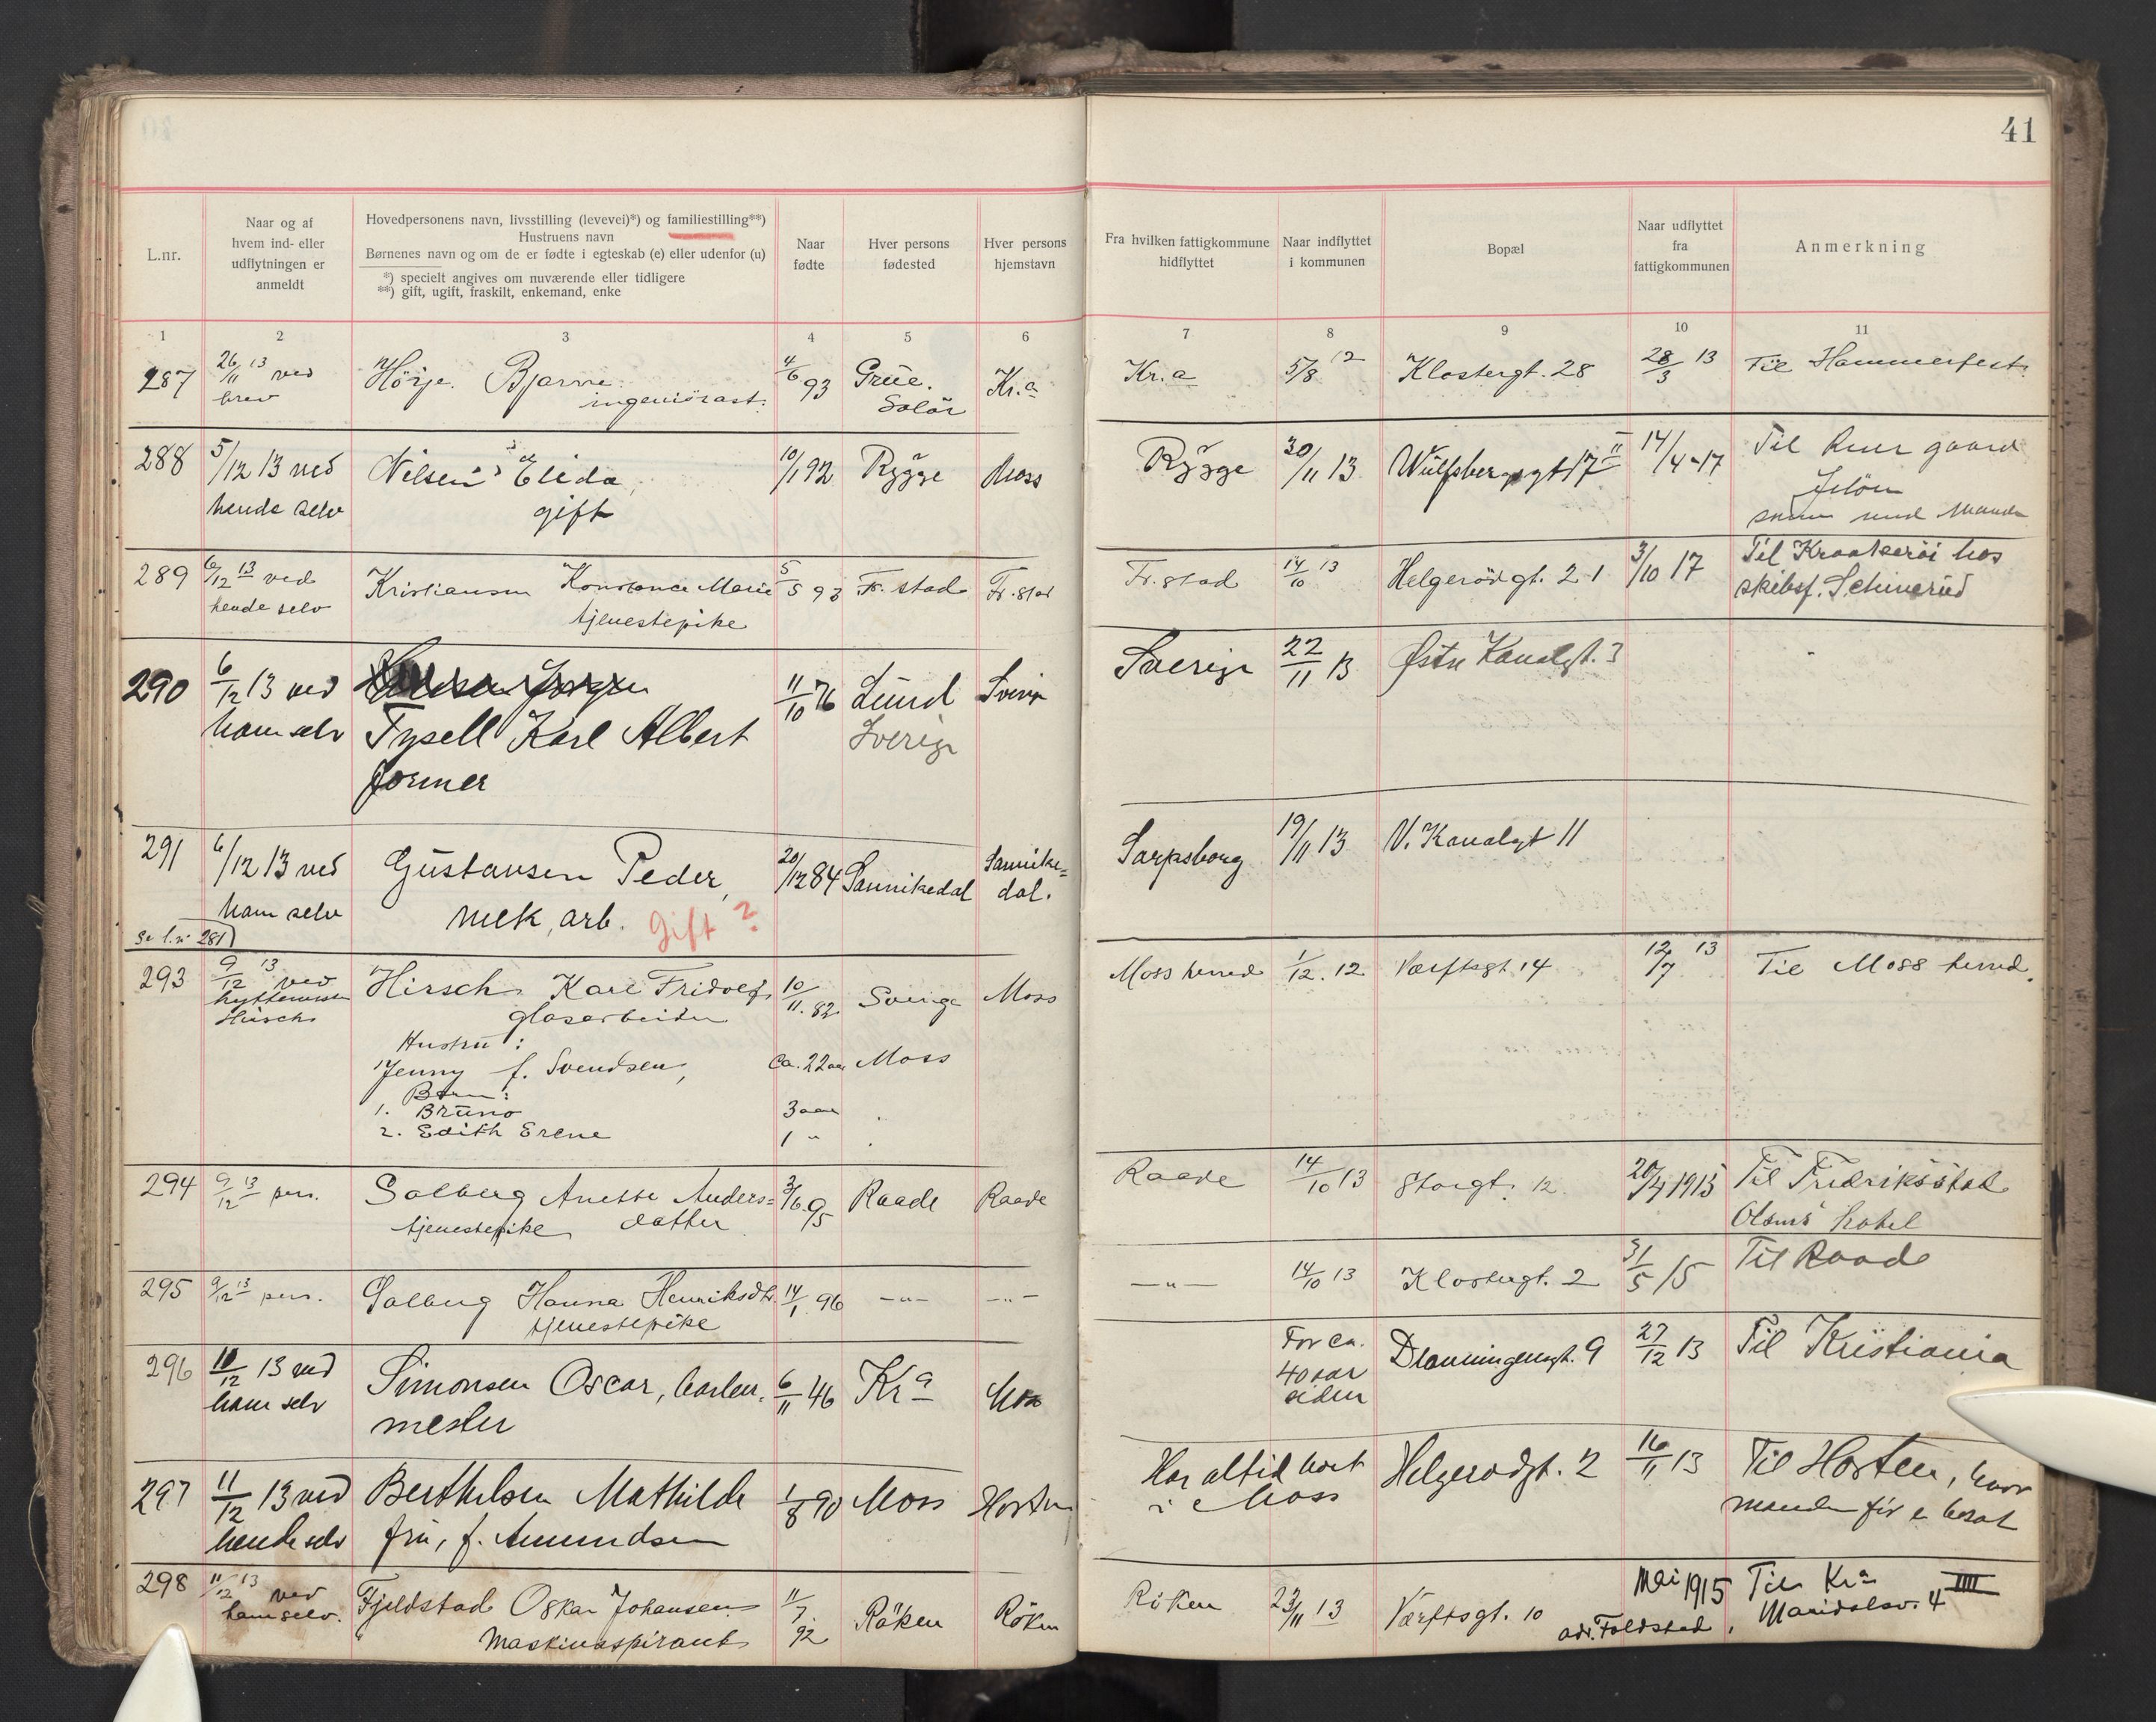 41
L.nr.
Naar og af
hvem ind- eller
udflytningen er
anmeldt
Hovedpersonens navn, livsstilling (levevei)*) og familiestilling**)
Hustruens navn
Børnenes navn og om de er fødte i egteskab (e) eller udenfor (u)
*) specielt angives om nuværende eller tidligere
**) gift, ugift, fraskilt, enkemand, enke
Naar
fødte
Hver persons
fødested
Hver persons
hjemstavn
Fra hvilken fattigkommune
hidflyttet
Naar indflyttet
i kommunen
Bopæl
Naar udflyttet
fra
fattigkommunen
Anmerkning
1 2 3 4 5 6 7 8 9 10 11
287 26/11 13 ved Höije. Bjarne 4/6 93 Grue. Kr.a Kr.a 5/8 12 Klostergt. 28 28/3 13 Til Hammerfest.
brev ingeniörast. Solör
288 5/12 13 ved Nilsen Elida, 10/1 92 Rygge Moss Rygge 30/11 13 Wulfsbergsgt 17 II 14/4-17 Til gaard
hende selv gift Jelöen
sammen med Manden
289 6/12 13 ved Kristiansen Konstance Marie 5/5 93 Fr. stad Fr. stad Fr. stad 14/10 13 Helgerödgt. 21 3/10 17 Til Kraakeröi hos
hende selv tjenestepike skibsf.
290 6/12 13 ved 11/10 76 Lund Sverige Sverige 22/11 13 Østre Kanalgt. 3
ham selv Fysell Karl Albert Sverige
former
291 6/12 13 ved Gustavsen Peder, 20/12 84 Sannikedal Sannike= Sarpsborg 19/11 13 V. Kanalgt 11
dal.
ham selv mek, arb. Gift ?
Se l.nr 281
293 9/12 13 ved Hirsch Karl Fridolf, 10/11. 82 Sverige Moss Moss herred 1/12. 12 Værftsgt. 14 12/7 13 Til Moss herred.
Hirsch glasarbeider
Hustru:
Jenny f. Svendsen, ca. 22 aar Moss
Børn:
1. Bruno 3 aar
2. Edith Erene 1 "
294 9/12 13 pers. Solberg Anette Anders= 3/6 95 Raade Raade Raade 14/10 13 Storgt. 12 20/4 1915 Til Fredriksstad
tjenestepike datter Olsens hotel
295 9/12 13 pers. Solberg Hanna Henriksdtr. 14/1 96 —"— —"— —"— 14/10 13 Klostergt. 2 31/5 15 Til Raade
tjenestepike
296 10/12 13 ved Simonsen Oscar, barber, 6/11 46 Kr a Moss For ca. Dronningensgt. 9 27/12 13 Til Kristiania
ham selv mester 40 aar
siden
297 11/12 13 ved Berthelsen Mathilde 1/8 90 Moss Horten Har altid boet Helgerødgt. 2 16/11 13 Til Horten, hvor
hende selv fru, f. Amundsen i Moss manden før er bosat
298 11/12 13 ved Fjeldstad Oskar Johansen 11/7. 92 Röken Röken Röken 23/11 13 Værftsgt. 10 Mai 1915 Til Kr a
ham selv. maskinaspirant adr. Foldstad, Maridalsv. 4 IIII